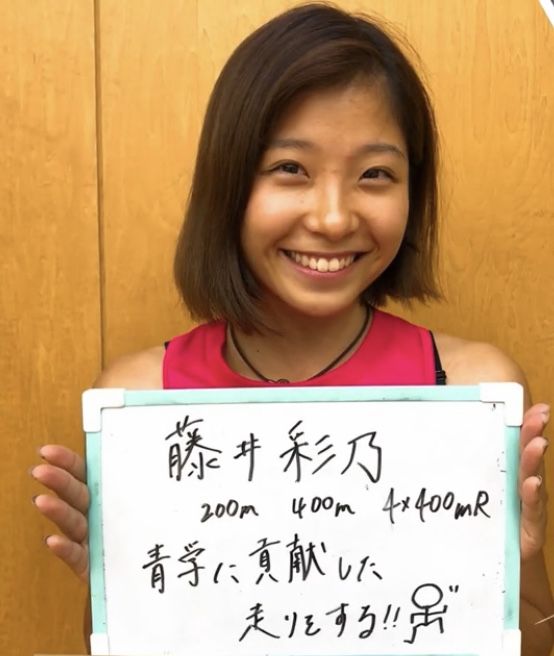 藤井彩乃
200m 400m 4×400mR
青学に貢献した
走りをする!!